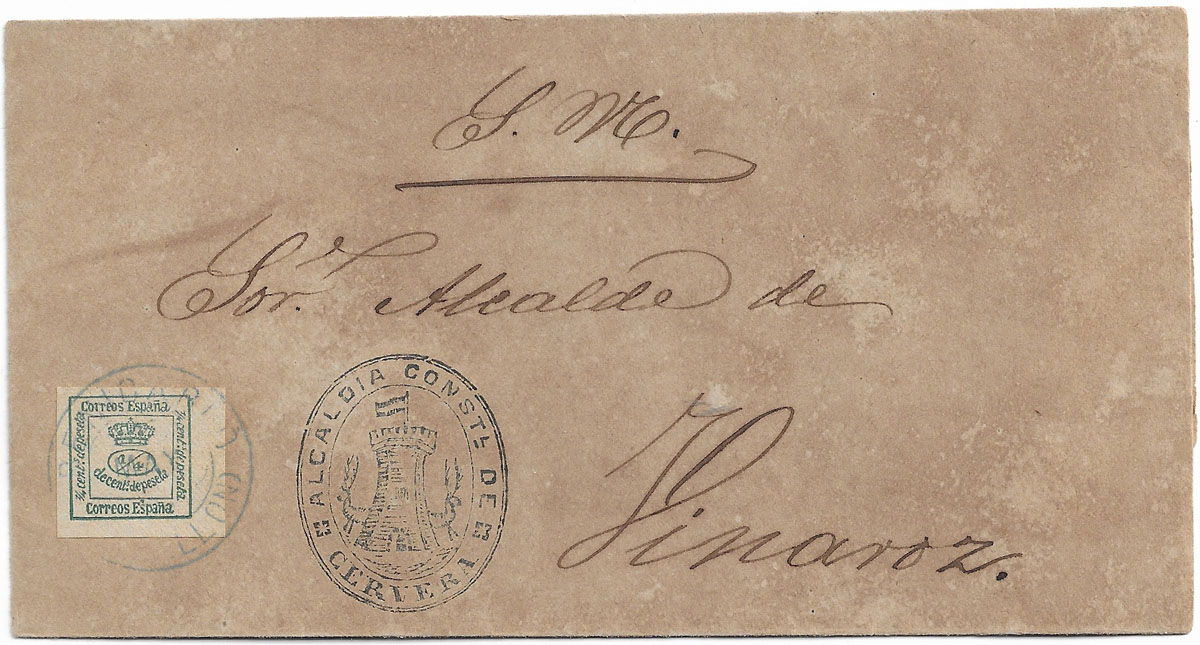 S. M.
Sor. Alcalde de
Vinaroz.
ALCALDIA CONSTL DE
CERVERA
Correos España
¼ cent.: de peseta
¼ cent.: de peseta
de cent.: de peseta
Correos España